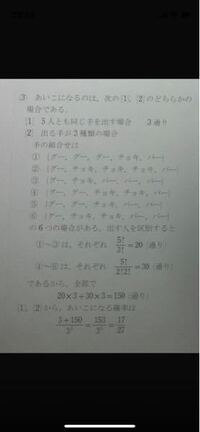 ③ あいこになるのは、次の[1]、[2]のどちらかの
場合である。
[1] 5人とも同じ手を出す場合 3通り
[2] 出る手が3種類の場合
手の組合せは
① {グー、グー、グー、チョキ、パー}
② {グー、チョキ、チョキ、チョキ、パー}
③ {グー、チョキ、パー、パー、パー}
④ {グー、グー、チョキ、チョキ、パー}
⑤ {グー、グー、チョキ、パー、パー}
⑥ {グー、チョキ、チョキ、パー、パー}
の6つの場合がある。出す人を区別すると
①～③は、それぞれ 5!/3! = 20 (通り)
④～⑥は、それぞれ 5!/2!2! = 30 (通り)
であるから、全部で
20×3+30×3=150 (通り)
[1]、[2]から、あいこになる確率は
3+150/3⁵ = 153/3⁵ = 17/27